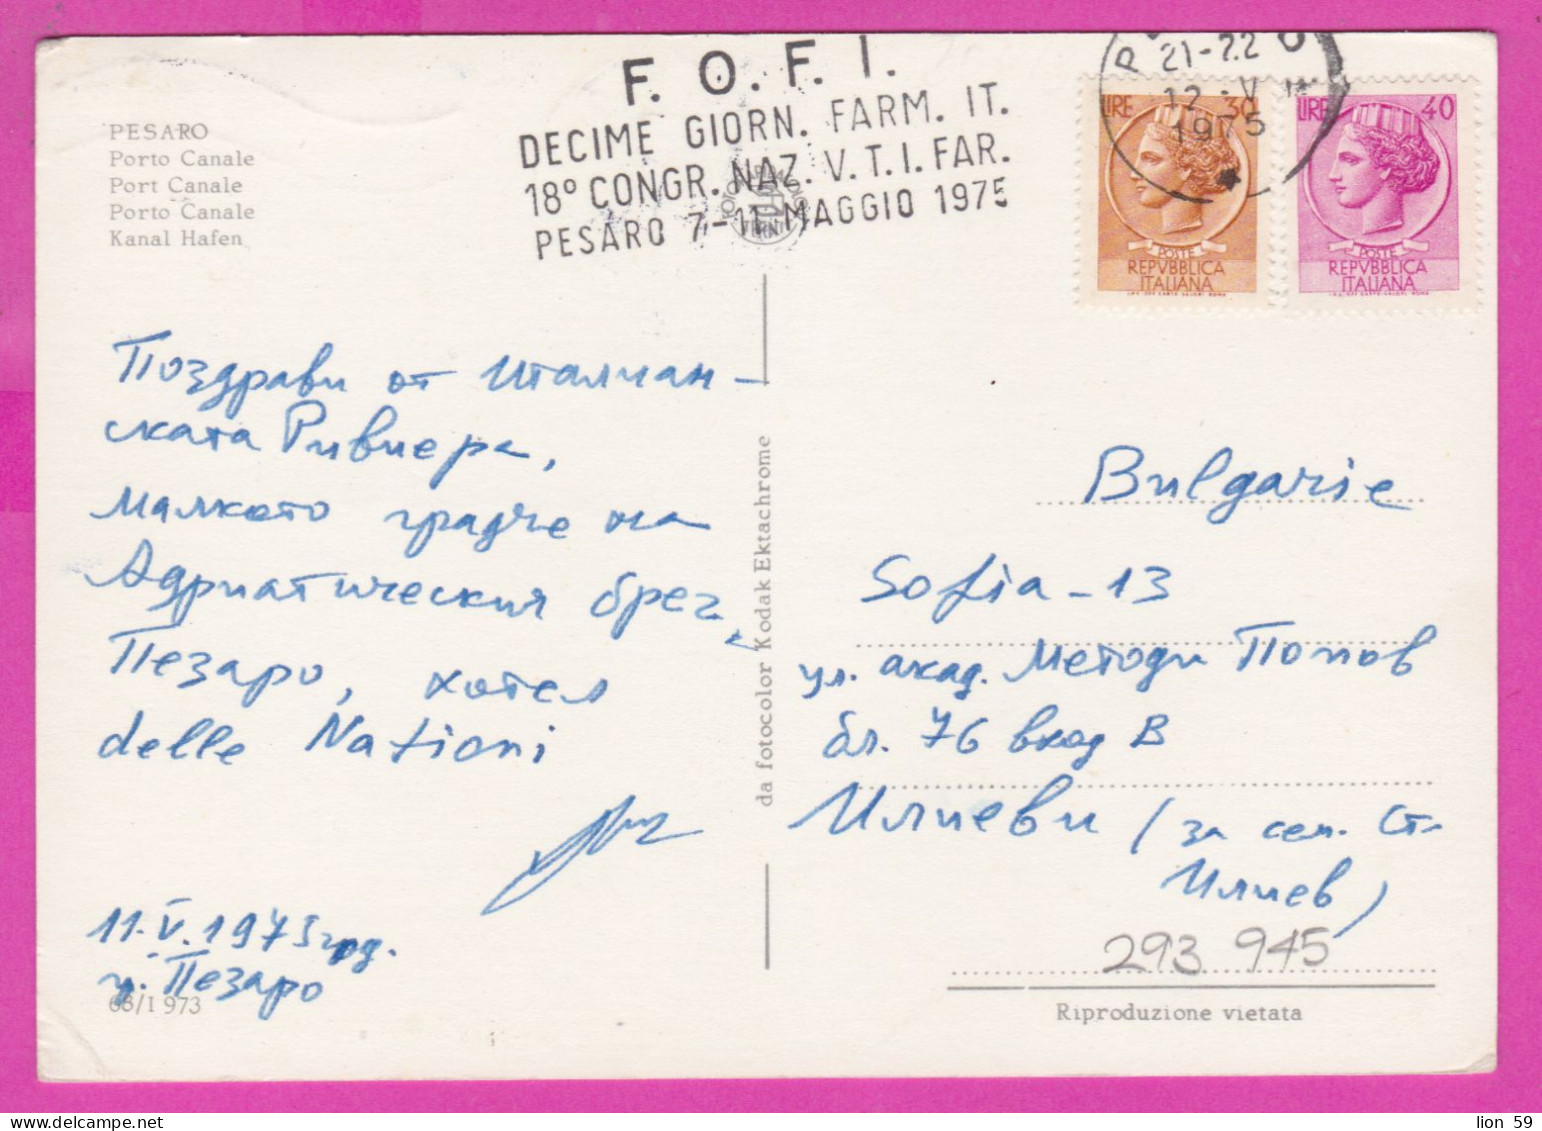 PESARO
Porto Canale
Port Canale
Porto Canale
Kanal Hafen
F. O. F. I.
DECIME GIORN. FARM. IT.
18° CONGR. NAZ. V.T.I. FAR.
PESARO 7-11 MAGGIO 1975
21-22
12 . V
1975
LIRE 30
POSTE
REPVBBLICA
ITALIANA
LIRE 40
POSTE
REPVBBLICA
ITALIANA
Поздрави от Италиан-
ската Ривиера,
малкото градче на
Адриатическия бряг,
Пезаро, хотел
delle Nationi
11.V.1975 год.
гр. Пезаро
68/I 973
da fotocolor Kodak Ektachrome
Bulgarie
Sofia - 13
ул. акад. Методи Попов
бл. 76 вход В
Илиеви (за сем. Ст.
Илиев)
293 945
Riproduzione vietata
lion 59